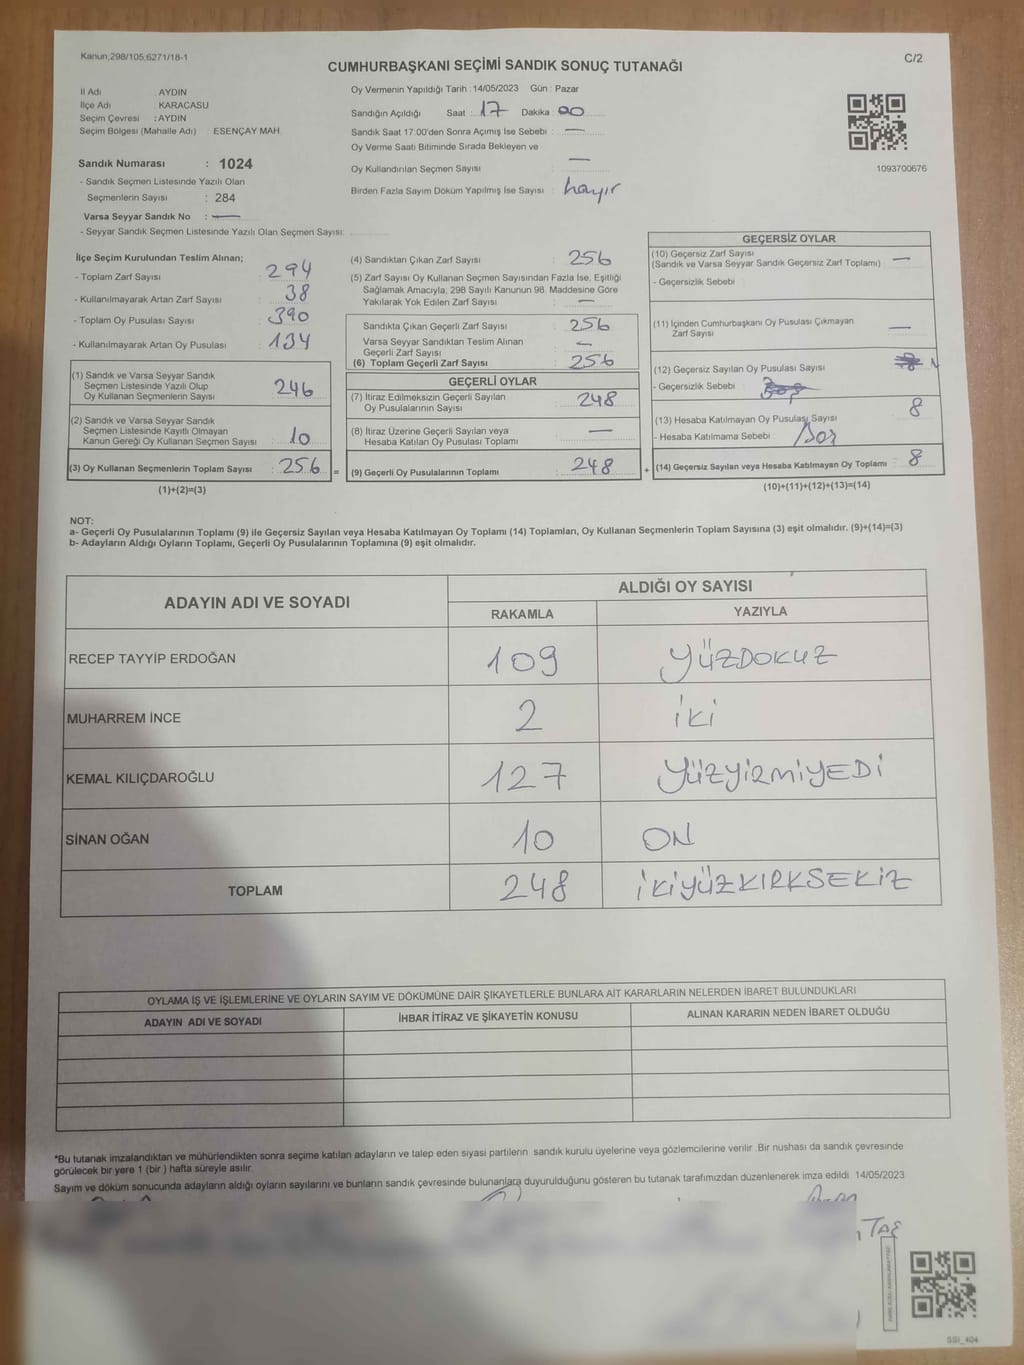 Kanun;298/105;6271/18-1
C/2
CUMHURBAŞKANI SEÇİMİ SANDIK SONUÇ TUTANAĞI
İl Adı : AYDIN
İlçe Adı : KARACASU
Seçim Çevresi : AYDIN
Seçim Bölgesi (Mahalle Adı) : ESENÇAY MAH.
Sandık Numarası : 1024
- Sandık Seçmen Listesinde Yazılı Olan
Seçmenlerin Sayısı : 284
Varsa Seyyar Sandık No : —
- Seyyar Sandık Seçmen Listesinde Yazılı Olan Seçmen Sayısı:
Oy Vermenin Yapıldığı Tarih : 14/05/2023 Gün : Pazar
Sandığın Açıldığı Saat : 17 Dakika 00
Sandık Saat 17.00'den Sonra Açılmış İse Sebebi : —
Oy Verme Saati Bitiminde Sırada Bekleyen ve
Oy Kullandırılan Seçmen Sayısı : —
Birden Fazla Sayım Döküm Yapılmış İse Sayısı : hayır
1093700676
İlçe Seçim Kurulundan Teslim Alınan;
- Toplam Zarf Sayısı : 294
- Kullanılmayarak Artan Zarf Sayısı : 38
- Toplam Oy Pusulası Sayısı : 390
- Kullanılmayarak Artan Oy Pusulası : 134
(1) Sandık ve Varsa Seyyar Sandık
Seçmen Listesinde Yazılı Olup
Oy Kullanan Seçmenlerin Sayısı 246
(2) Sandık ve Varsa Seyyar Sandık
Seçmen Listesinde Kayıtlı Olmayan
Kanun Gereği Oy Kullanan Seçmen Sayısı 10
(3) Oy Kullanan Seçmenlerin Toplam Sayısı 256 =
(1)+(2)=(3)
(4) Sandıktan Çıkan Zarf Sayısı : 256
(5) Zarf Sayısı Oy Kullanan Seçmen Sayısından Fazla İse, Eşitliği
Sağlamak Amacıyla, 298 Sayılı Kanunun 98. Maddesine Göre
Yakılarak Yok Edilen Zarf Sayısı : —
Sandıkta Çıkan Geçerli Zarf Sayısı 256
Varsa Seyyar Sandıktan Teslim Alınan
Geçerli Zarf Sayısı —
(6) Toplam Geçerli Zarf Sayısı 256
GEÇERLİ OYLAR
(7) İtiraz Edilmeksizin Geçerli Sayılan
Oy Pusulalarının Sayısı 248
(8) İtiraz Üzerine Geçerli Sayılan veya
Hesaba Katılan Oy Pusulası Toplamı —
(9) Geçerli Oy Pusulalarının Toplamı 248 +
GEÇERSİZ OYLAR
(10) Geçersiz Zarf Sayısı
(Sandık ve Varsa Seyyar Sandık Geçersiz Zarf Toplamı) —
- Geçersizlik Sebebi
(11) İçinden Cumhurbaşkanı Oy Pusulası Çıkmayan
Zarf Sayısı —
(12) Geçersiz Sayılan Oy Pusulası Sayısı
- Geçersizlik Sebebi
(13) Hesaba Katılmayan Oy Pusulası Sayısı 8
- Hesaba Katılmama Sebebi :
(14) Geçersiz Sayılan veya Hesaba Katılmayan Oy Toplamı 8
(10)+(11)+(12)+(13)=(14)
NOT:
a- Geçerli Oy Pusulalarının Toplamı (9) ile Geçersiz Sayılan veya Hesaba Katılmayan Oy Toplamı (14) Toplamları, Oy Kullanan Seçmenlerin Toplam Sayısına (3) eşit olmalıdır. (9)+(14)=(3)
b- Adayların Aldığı Oyların Toplamı, Geçerli Oy Pusulalarının Toplamına (9) eşit olmalıdır.
ADAYIN ADI VE SOYADI
ALDIĞI OY SAYISI
RAKAMLA YAZIYLA
RECEP TAYYİP ERDOĞAN 109 YÜZDOKUZ
MUHARREM İNCE 2 İKİ
KEMAL KILIÇDAROĞLU 127 YÜZYİRMİYEDİ
SİNAN OĞAN 10 ON
TOPLAM 248 İKİYÜZKIRKSEKİZ
OYLAMA İŞ VE İŞLEMLERİNE VE OYLARIN SAYIM VE DÖKÜMÜNE DAİR ŞİKAYETLERLE BUNLARA AİT KARARLARIN NELERDEN İBARET BULUNDUKLARI
ADAYIN ADI VE SOYADI İHBAR İTİRAZ VE ŞİKAYETİN KONUSU ALINAN KARARIN NEDEN İBARET OLDUĞU
*Bu tutanak imzalandıktan ve mühürlendikten sonra seçime katılan adayların ve talep eden siyasi partilerin sandık kurulu üyelerine veya gözlemcilerine verilir. Bir nüshası da sandık çevresinde
görülecek bir yere 1 (bir) hafta süreyle asılır.
Sayım ve döküm sonucunda adayların aldığı oyların sayılarını ve bunların sandık çevresinde bulunanlara duyurulduğunu gösteren bu tutanak tarafımızdan düzenlenerek imza edildi. 14/05/2023
TAŞ
SSI_404